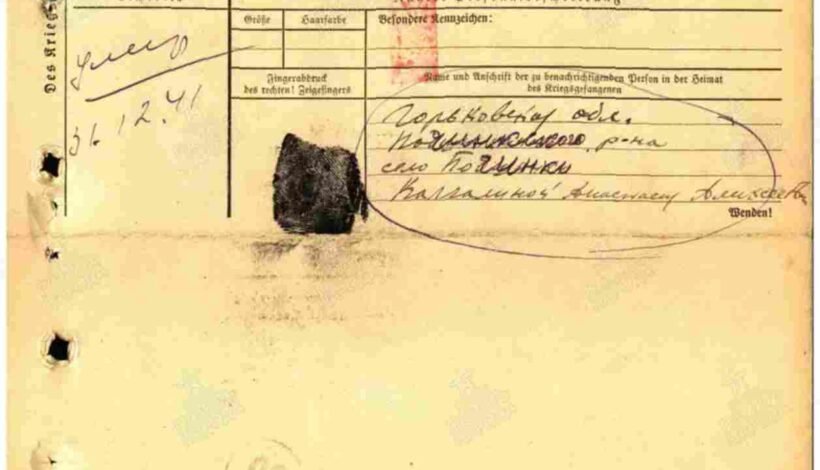 Des Kriegs
Größe
Haarfarbe
Besondere Kennzeichen:
Fingerabdruck
des rechten! Zeigefingers
Name und Anschrift der zu benachrichtigenden Person in der Heimat
des Kriegsgefangenen
умер
31.12.41
Горьковской обл.
Починковского р-на
село Починки
Каргалиной Анастасии Алексеевн
Wenden!